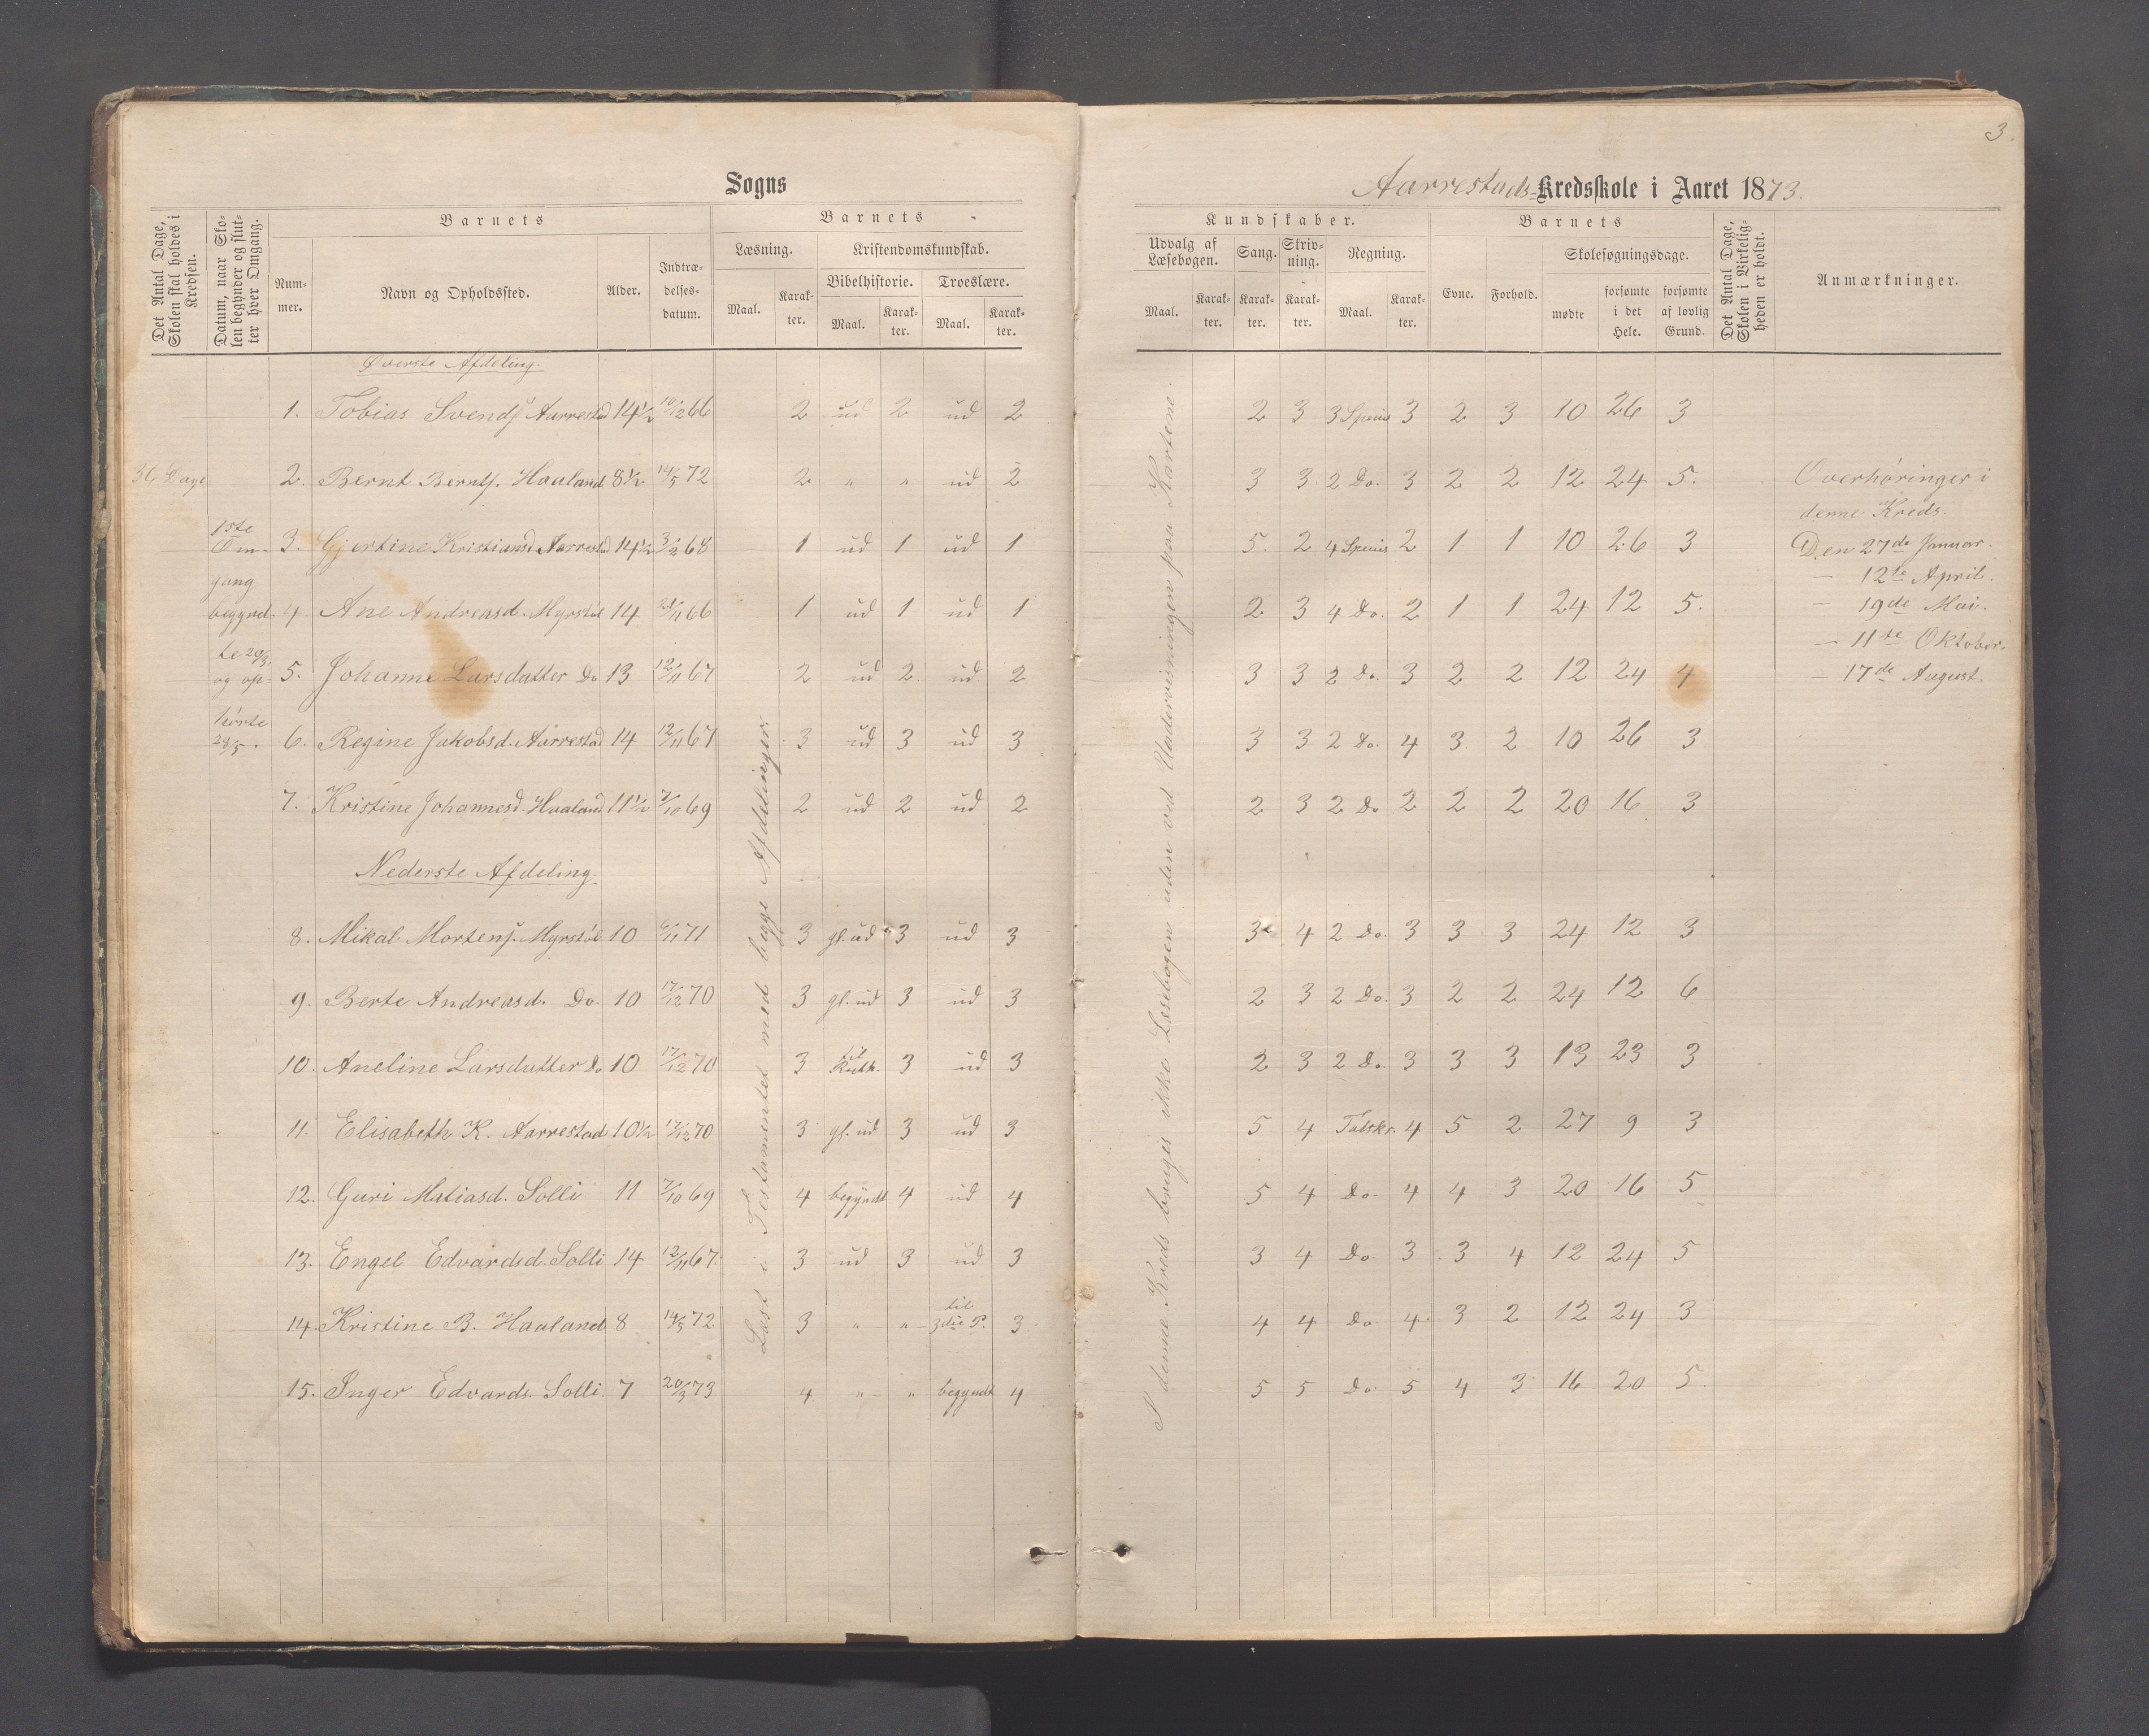 3.
Sogns
Aarrestads Kredsskole i Aaret 1873.
Det Antal Dage, Skolen skal holdes i Kredsen.
Datum, naar Skolen begynder og slutter hver Omgang.
Barnets
Nummer.
Navn og Opholdssted.
Alder.
Indtrædelsesdatum.
Barnets
Læsning.
Maal.
Karakter.
Kristendomskundskab.
Bibelhistorie.
Maal.
Karakter.
Troeslære.
Maal.
Karakter.
Kundskaber.
Udvalg af Læsebogen.
Maal.
Karakter.
Sang.
Karakter.
Skrivning.
Karakter.
Regning.
Maal.
Karakter.
Barnets
Evne.
Forhold.
Skolesøgningsdage.
mødte
forsømte i det Hele.
forsømte af lovlig Grund.
Det Antal Dage, Skolen i Virkeligheden er holdt.
Anmærkninger.
36 Dage
1ste
Om-
gang
begynd-
te 20/3
og op-
hørte
29/5.
Øverste Afdeling.
1. Tobias Svends. Aarrestad 14½ 10/12 66 2 ud 2 ud 2 2 3 3 Species 3 2 3 10 26 3
2. Bernt Bernts. Haaland 8½ 14/5 72 2 " " ud 2 3 3 2 Do. 3 2 2 12 24 5.
3. Gjertine Kristiansd. Aarrestad 14½ 3/2 68 1 ud 1 ud 1 5. 2 4 Species 2 1 1 10 26 3
4 Ane Andreasd. Myrstøl 14 21/11 66 1 ud 1 ud 1 2 3 4 Do. 2 1 1 24 12 5.
5. Johanne Larsdatter Do 13 12/11 67 2 ud 2 ud 2 3 3 2 Do. 3 2 2 12 24 4
6. Regine Jakobsd. Aarrestad 14 12/11 67 3 ud 3 ud 3 3 3 2 Do. 4 3 2 10 26 3
7. Kristine Johannesd. Haaland 11½ 7/10 69 2 ud 2 ud 2 2 3 2 Do 2 2 2 20 16 3
Nederste Afdeling.
8. Mikal Mortens. Myrstøl 10 6/11 71 3 gl. ud 3 ud 3 3 4 2 Do. 3 3 3 24 12 3
9. Berte Andreasd. Do. 10 17/12 70 3 gl. ud 3 ud 3 2 3 2 Do. 3 2 2 24 12 6
10. Aneline Larsdatter Do 10 17/12 70 3 til Ruth. 3 ud 3 2 3 2 Do. 3 3 3 13 23 3
11. Elisabeth K. Aarrestad 10½ 17/12 70 3 gl. ud 3 ud 3 5 4 Talskr. 4 5 2 27 9 3
12. Guri Matiasd. Solli 11 7/10 69 4 begyndt 4 ud 4 5 4 Do. 4 4 3 20 16 5
13. Engel Edvardsd. Solli 14 12/11 67. 3 ud 3 ud 3 3 4 Do. 3 3 4 12 24 5
14. Kristine B. Haaland 8 14/5 72 3 " " til 3die P. 3 4 4 Do 4 3 2 12 24 3
15. Inger Edvards. Solli. 7 20/3 73 4 " " begyndt 4 5 5 Do 5 4 3 16 20 5.
Læst i Testamentet med begge Afdelinger.
I denne Kreds bruges ikke Læsebogen uden ved Undervisningen paa Kartene.
Overhøringer i
denne Kreds.
Den 27de Januar.
— 12te April.
— 19de Mai.
— 11te Oktober.
— 17de August.